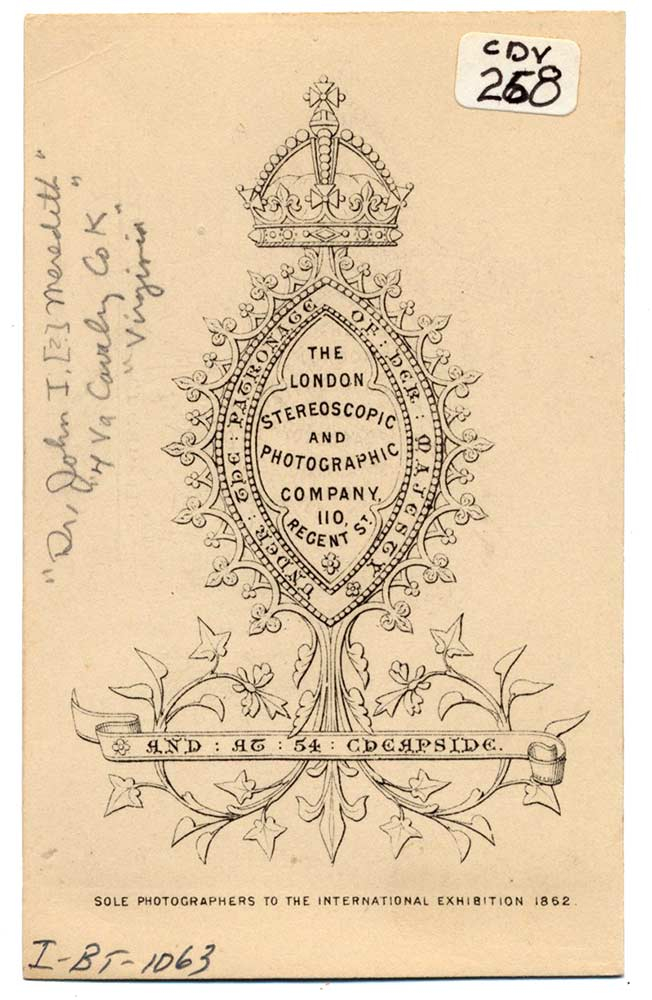 CDV
268
"Dr. John I. [?] Meredith"
"4 Va Cavalry Co K"
"Virginia"
UNDER : THE : PATRONAGE : OF : HER : MAJESTY
THE
LONDON
STEREOSCOPIC
AND
PHOTOGRAPHIC
COMPANY,
110,
REGENT ST.
AND : AT : 54 : CHEAPSIDE.
SOLE PHOTOGRAPHERS TO THE INTERNATIONAL EXHIBITION 1862.
I-BT-1063